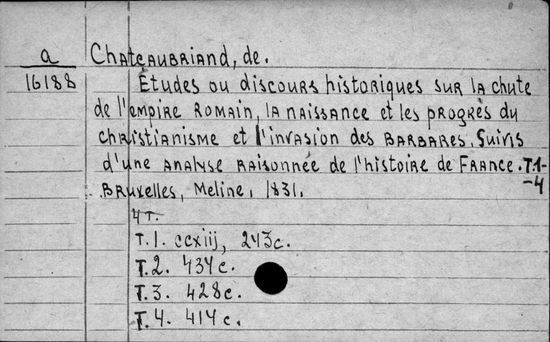 a
16188
Chateaubriand, de.
Études ou discours historiques sur la chute
de l'empire romain, la naissance et les progrès du
christianisme et l'invasion des barbares. Suivis
d'une analyse raisonnée de l'histoire de France. T.1-
-4
Bruxelles, Meline, 1831.
4 т.
T.1. ccxiij, 243c.
T.2. 434c.
T.3. 428c.
T.4. 414c.